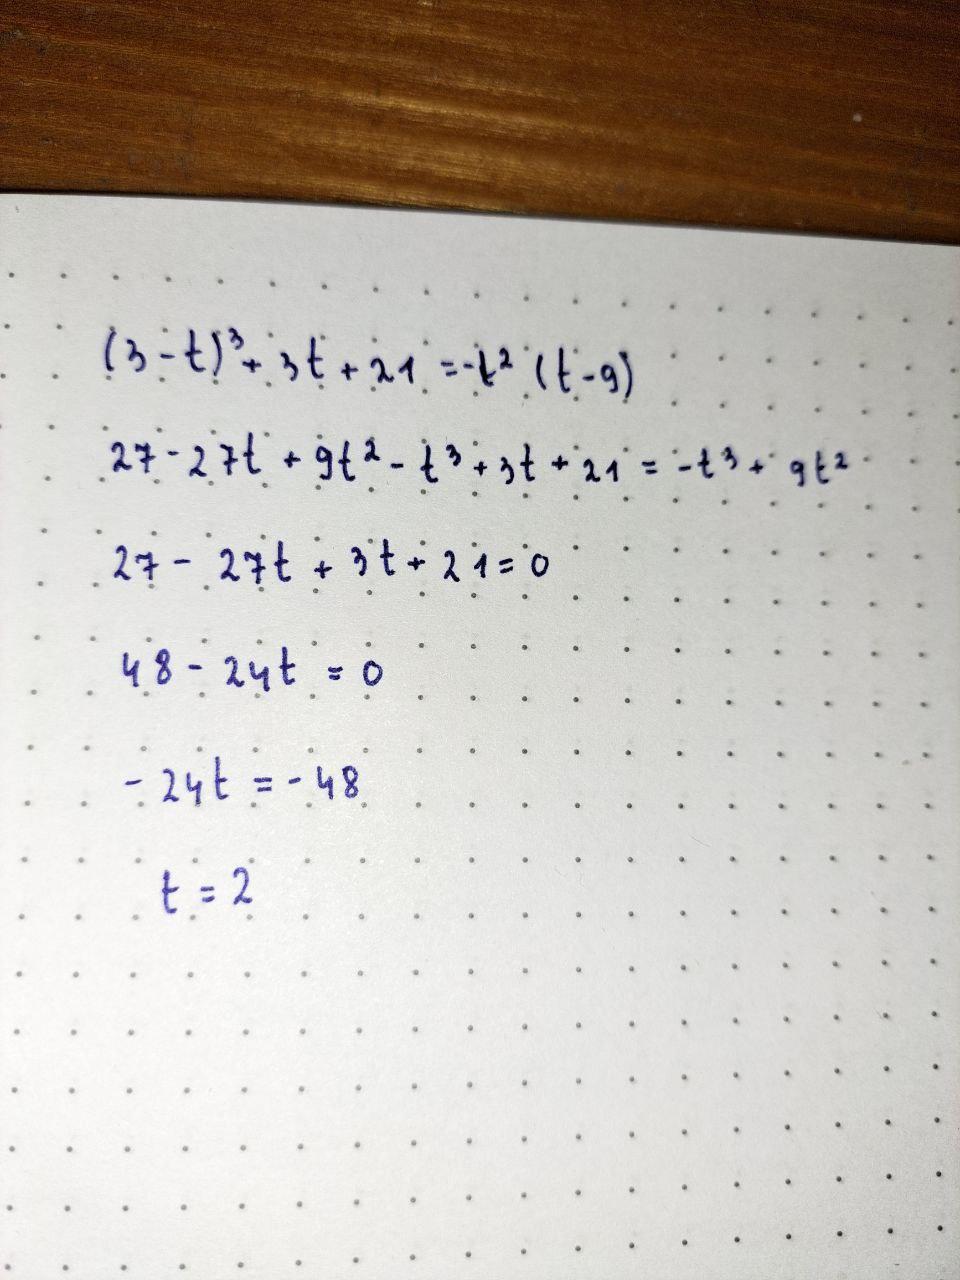 (3-t)³+3t+21=-t²(t-9)
27-27t+9t²-t³+3t+21=-t³+9t²
27-27t+3t+21=0
48-24t=0
-24t=-48
t=2